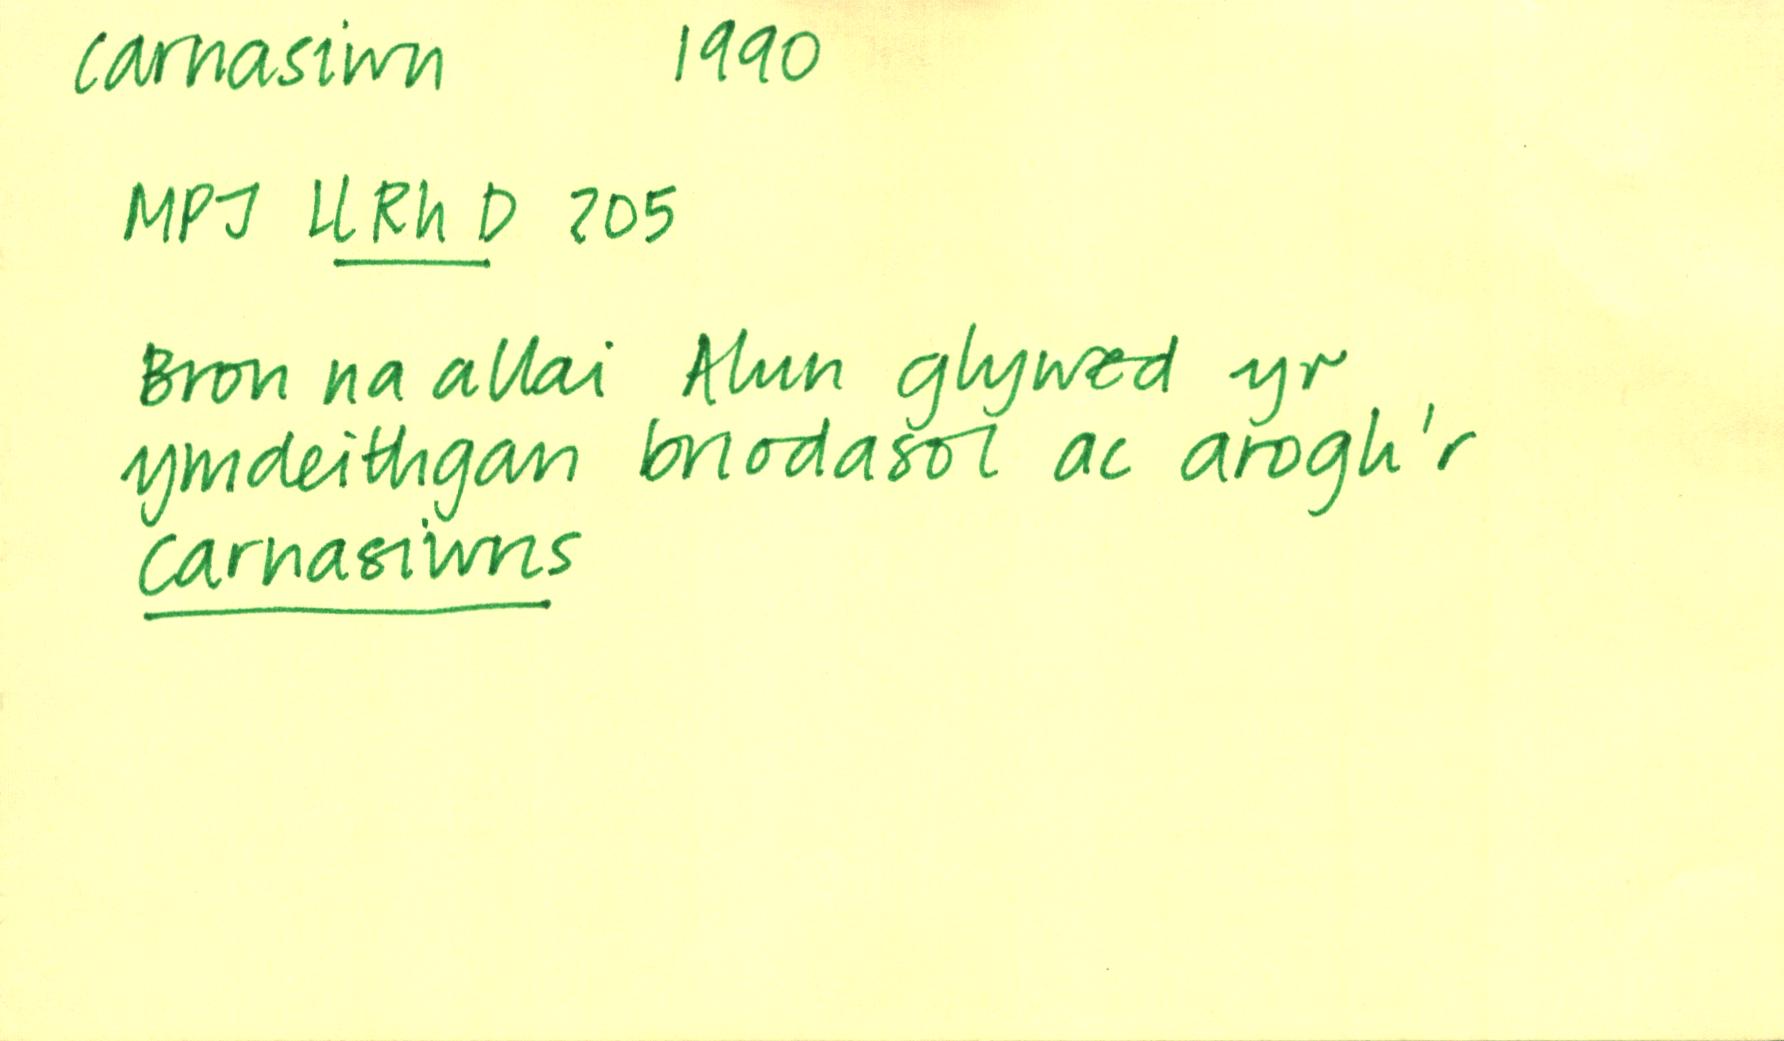 carnasiwn 1990
MPJ LlRhD 205
Bron na allai Alun glywed yr
ymdeithgan briodasol ac arogli'r
carnasiwns